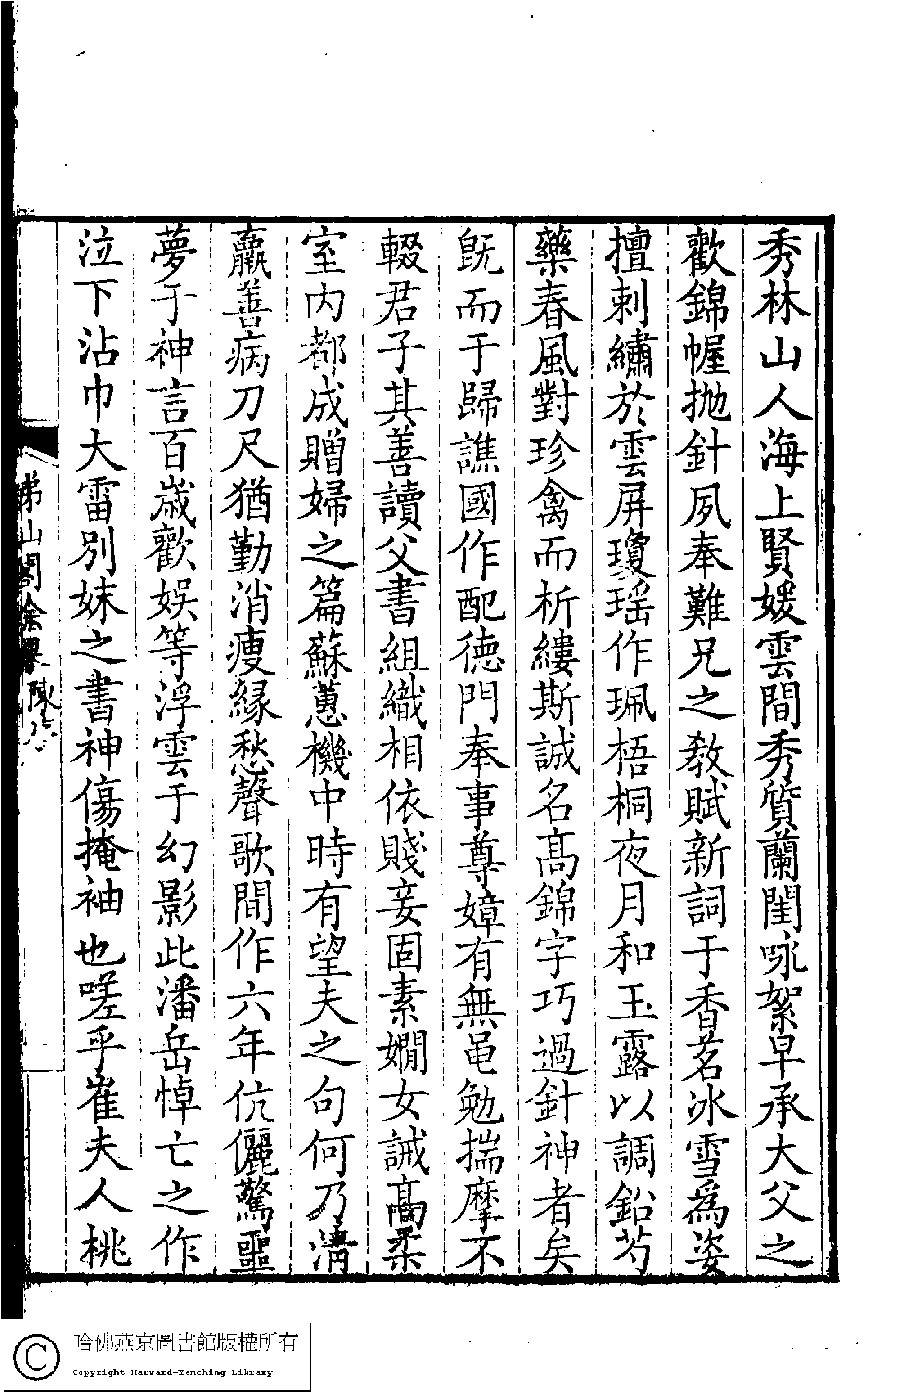 秀林山人海上賢媛雲間秀質蘭閨咏絮早承大父之
歡錦幄拋針夙奉難兄之教賦新詞于香茗冰雪為姿
擅刺繡於雲屏瓊瑶作珮梧桐夜月和玉露以調鉛芍
藥春風對珍禽而析縷斯誠名髙錦字巧過針神者矣
旣而于歸譙國作配德門奉事尊嫜有無黽勉揣摩不
輟君子其善讀父書組織相依賤妾固素嫺女誡髙柔
室内都成贈婦之篇蘇蕙機中時有望夫之句何乃清
羸善病刀尺猶勤消瘦緣愁聲歌間作六年伉儷驚噩
夢于神言百歲歡娛等浮雲于幻影此潘岳悼亡之作
泣下沾巾大雷別妹之書神傷掩袖也嗟乎崔夫人桃
山閣
哈佛燕京圖書館版權所有
Copyright Harvard-Yenching Library